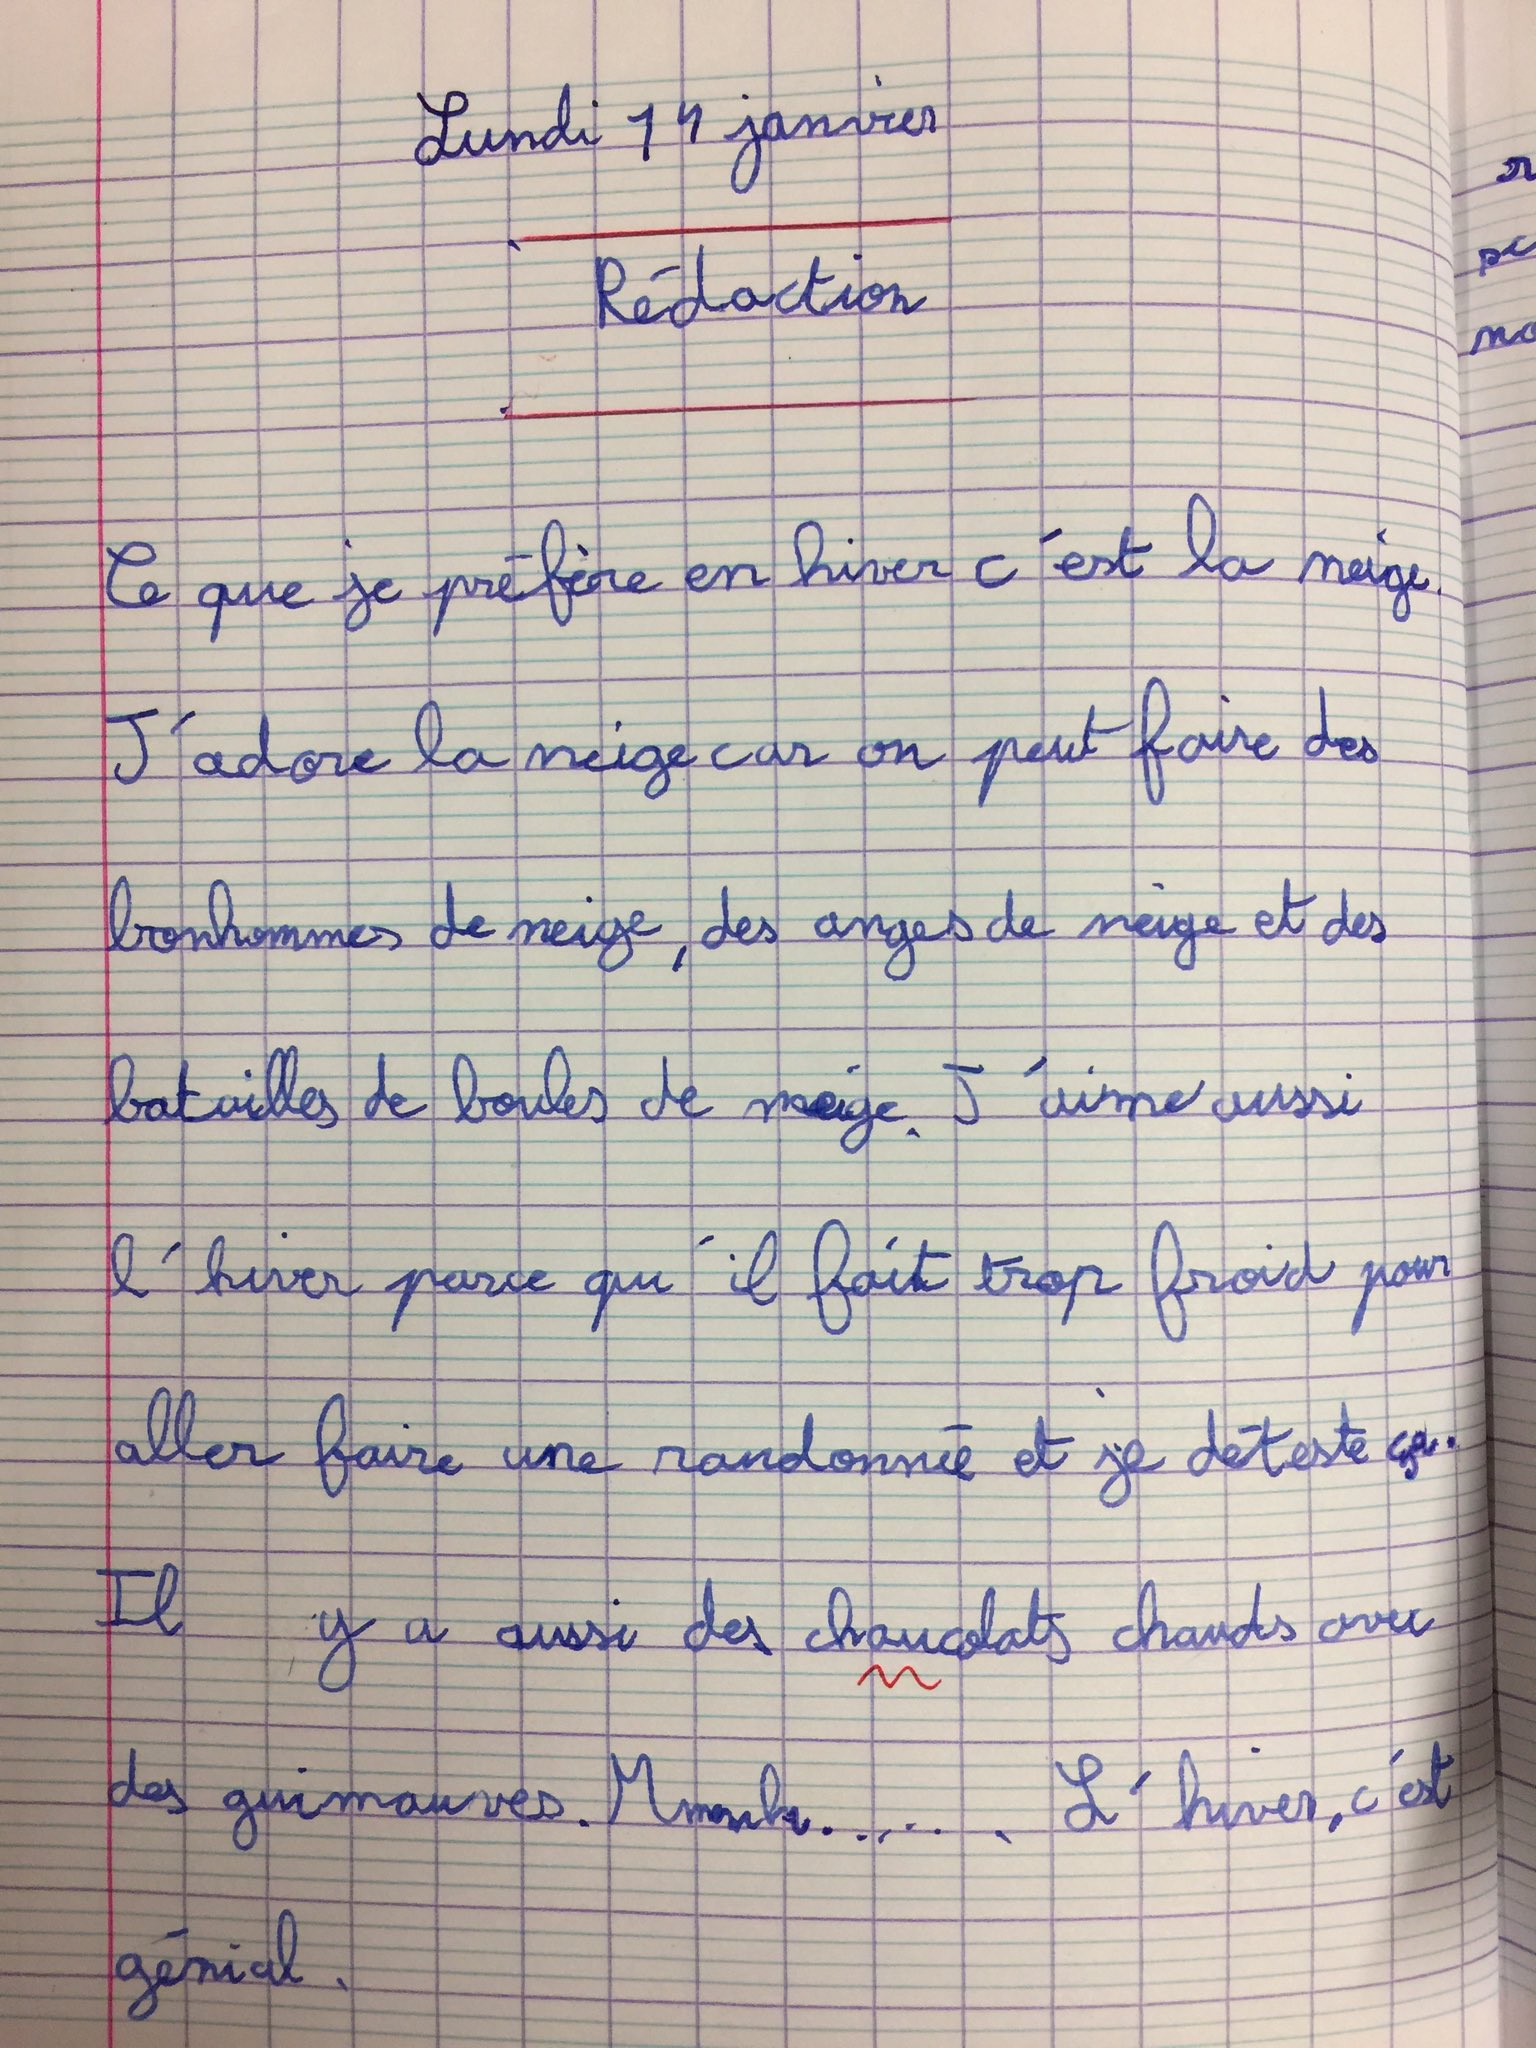 Lundi 14 janvier
Rédaction
Ce que je préfère en hiver c'est la neige.
J'adore la neige car on peut faire des
bonhommes de neige, des anges de neige et des
batailles de boules de neige. J'aime aussi
l'hiver parce qu'il fait trop froid pour
aller faire une randonnée et je déteste ça.
Il y a aussi des chaucolats chauds avec
des guimauves. L'hiver, c'est
génial.